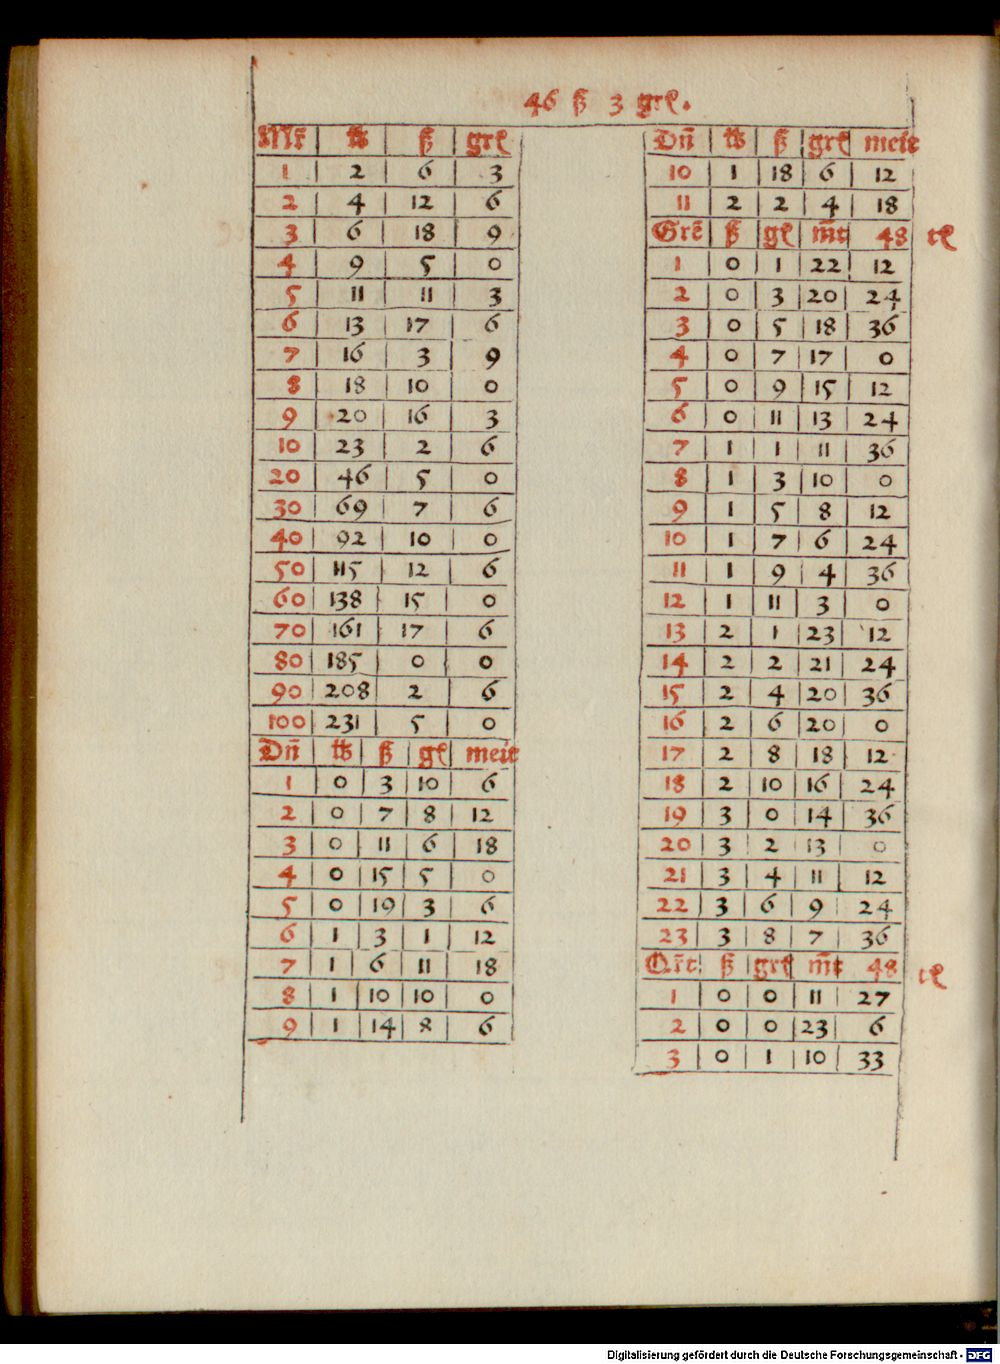 46 ß 3 grꝭ.
Mr̄ | ℔ | ß | grꝭ
1 | 2 | 6 | 3
2 | 4 | 12 | 6
3 | 6 | 18 | 9
4 | 9 | 5 | 0
5 | 11 | 11 | 3
6 | 13 | 17 | 6
7 | 16 | 3 | 9
8 | 18 | 10 | 0
9 | 20 | 16 | 3
10 | 23 | 2 | 6
20 | 46 | 5 | 0
30 | 69 | 7 | 6
40 | 92 | 10 | 0
50 | 115 | 12 | 6
60 | 138 | 15 | 0
70 | 161 | 17 | 6
80 | 185 | 0 | 0
90 | 208 | 2 | 6
100 | 231 | 5 | 0
Dn̄ | ℔ | ß | gꝭ | meit
1 | 0 | 3 | 10 | 6
2 | 0 | 7 | 8 | 12
3 | 0 | 11 | 6 | 18
4 | 0 | 15 | 5 | 0
5 | 0 | 19 | 3 | 6
6 | 1 | 3 | 1 | 12
7 | 1 | 6 | 11 | 18
8 | 1 | 10 | 10 | 0
9 | 1 | 14 | 8 | 6
Dn̄ | ℔ | ß | grꝭ | meit
10 | 1 | 18 | 6 | 12
11 | 2 | 2 | 4 | 18
Grē | ß | gꝭ | m̄t | 48 tꝭ
1 | 0 | 1 | 22 | 12
2 | 0 | 3 | 20 | 24
3 | 0 | 5 | 18 | 36
4 | 0 | 7 | 17 | 0
5 | 0 | 9 | 15 | 12
6 | 0 | 11 | 13 | 24
7 | 1 | 1 | 11 | 36
8 | 1 | 3 | 10 | 0
9 | 1 | 5 | 8 | 12
10 | 1 | 7 | 6 | 24
11 | 1 | 9 | 4 | 36
12 | 1 | 11 | 3 | 0
13 | 2 | 1 | 23 | 12
14 | 2 | 2 | 21 | 24
15 | 2 | 4 | 20 | 36
16 | 2 | 6 | 20 | 0
17 | 2 | 8 | 18 | 12
18 | 2 | 10 | 16 | 24
19 | 3 | 0 | 14 | 36
20 | 3 | 2 | 13 | 0
21 | 3 | 4 | 11 | 12
22 | 3 | 6 | 9 | 24
23 | 3 | 8 | 7 | 36
Qr̄t | ß | grꝭ | m̄t | 48 tꝭ
1 | 0 | 0 | 11 | 27
2 | 0 | 0 | 23 | 6
3 | 0 | 1 | 10 | 33
Digitalisierung gefördert durch die Deutsche Forschungsgemeinschaft - DFG